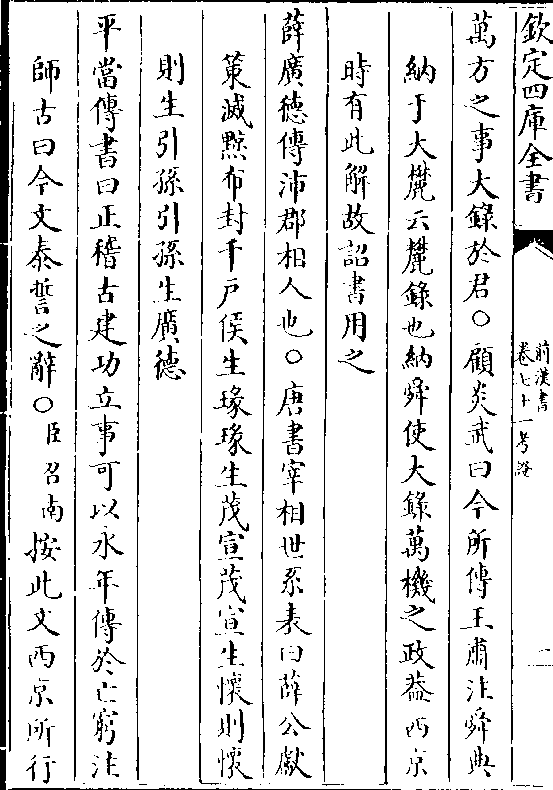 欽定四庫全書
前漢書
卷七十一考證
萬方之事大錄於君○顧炎武曰今所傳王肅注舜典
納于大麓云麓錄也納舜使大錄萬機之政葢西京
時有此解故詔書用之
薛廣德傳沛郡相人也○唐書宰相世系表曰薛公獻
策滅黥布封千戶侯生瑑瑑生茂宣茂宣生懷則懷
則生引孫引孫生廣德
平當傳書曰正稽古建功立事可以永年傳於亡窮注
師古曰今文泰誓之辭○臣召南按此文西京所行